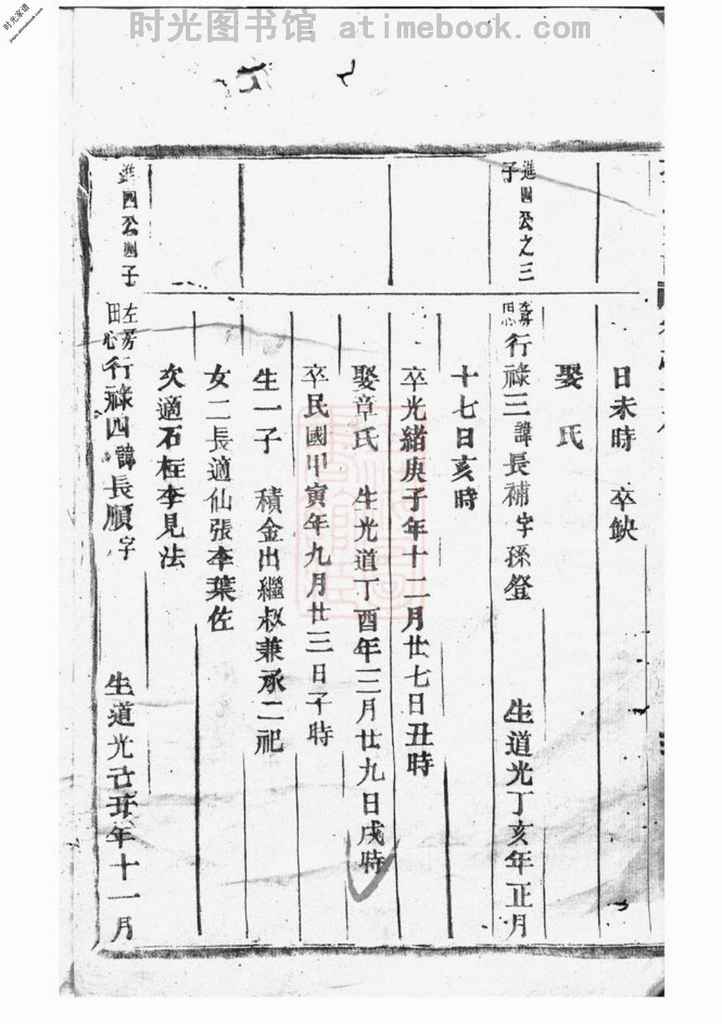 时光图书馆 atimebook.com
时光家谱
www.atimebook.com
日未時 卒缺
娶 氏
進四公之三子
田心 行祿三諱長補字孫登 生道光丁亥年正月
十七日亥時
卒光緒庚子年十二月廿七日丑時
娶章氏 生光道丁酉年三月廿九日戌時
卒民國甲寅年九月廿三日子時
生一子 積金出繼叔兼承二祀
女二長適仙張李葉佐
次適石柱李見法
進四公四子
左房田心 行祿四諱長順字 生道光己丑年十一月